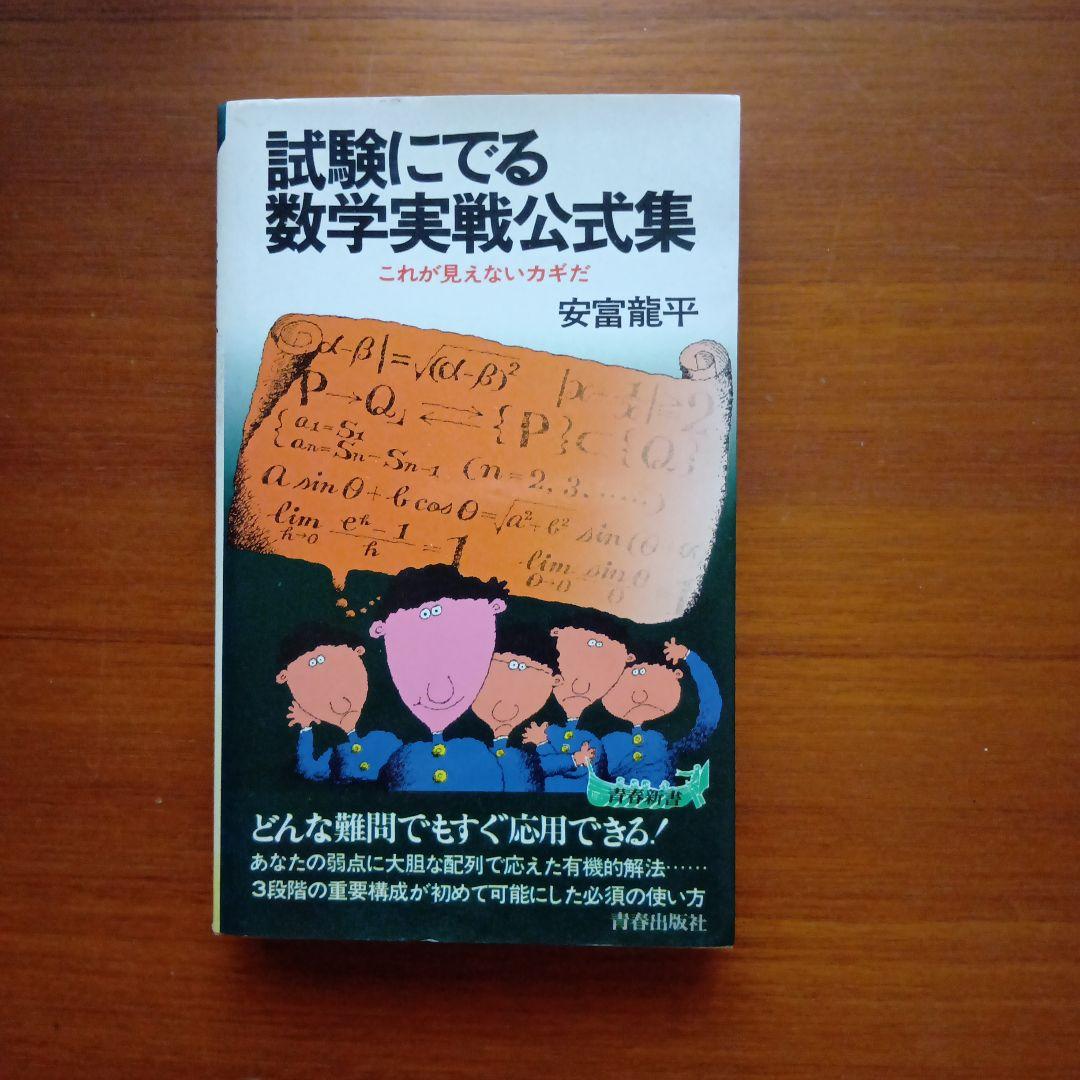 試験にでる
数学実戦公式集
これが見えないカギだ
安富龍平
α-β|=√(α-β)²
|x-1/x|=2
P→Q」⇄{P}⊂{Q}
{a₁=S₁
aₙ=Sₙ-Sₙ₋₁ (n=2,3,……)
a sinθ+b cosθ=√a²+b² sin(θ+α
lim h→0 eʰ-1/h=1
lim θ→0 sinθ/θ=1
青春新書
どんな難問でもすぐ応用できる!
あなたの弱点に大胆な配列で応えた有機的解法……
3段階の重要構成が初めて可能にした必須の使い方
青春出版社